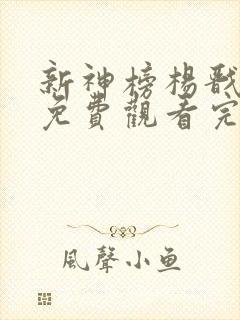 新神榜楊戩
免費觀看完
風聲小鱼